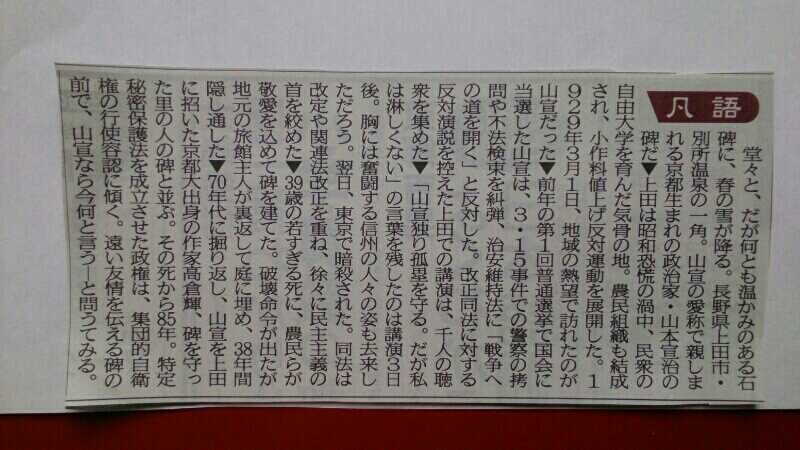 凡語
堂々と、だが何とも温かみのある石
碑に、春の雪が降る。長野県上田市・
別所温泉の一角。山宣の愛称で親しま
れる京都生まれの政治家・山本宣治の
碑だ▼上田は昭和恐慌の渦中、民衆の
自由大学を育んだ気骨の地。農民組織も結成
され、小作料値上げ反対運動を展開した。1
929年3月1日、地域の熱望で訪れたのが
山宣だった▼前年の第1回普通選挙で国会に
当選した山宣は、3・15事件での警察の拷
問や不法検束を糾弾、治安維持法に「戦争へ
の道を開く」と反対した。改正同法に対する
反対演説を控えた上田での講演は、千人の聴
衆を集めた▼「山宣独り孤塁を守る。だが私
は淋しくない」の言葉を残したのは講演3日
後。胸には奮闘する信州の人々の姿も去来し
ただろう。翌日、東京で暗殺された。同法は
改定や関連法改正を重ね、徐々に民主主義の
首を絞めた▼39歳の若すぎる死に、農民らが
敬愛を込めて碑を建てた。破壊命令が出たが
地元の旅館主人が裏返して庭に埋め、38年間
隠し通した▼70年代に掘り返し、山宣を上田
に招いた京都大出身の作家高倉輝、碑を守っ
た里の人の碑と並ぶ。その死から85年。特定
秘密保護法を成立させた政権は、集団的自衛
権の行使容認に傾く。遠い友情を伝える碑の
前で、山宣なら今何と言う―と問うてみる。